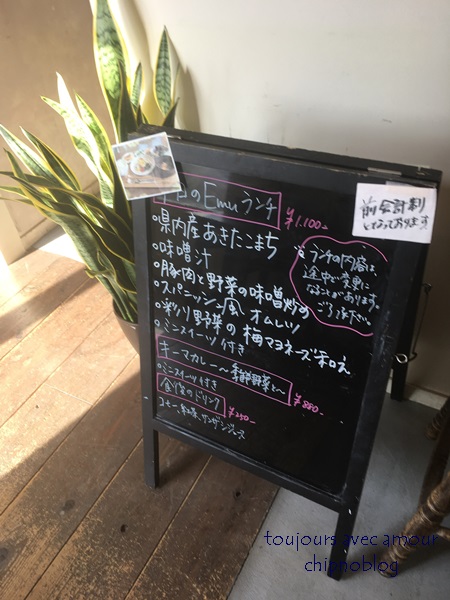 日のEmuランチ ¥1,100-
○県内産あきたこまち
○味噌汁
○豚肉と野菜の味噌炒め
○スパニッシュ風オムレツ
○彩り野菜の梅マヨネーズ和え
○ミニスイーツ付き
※ランチの内容は
途中で変更に
なることがあります。
ご了承下さい。
前会計制
となっております
キーマカレー〜季節野菜と〜 ¥880-
○ミニスイーツ付き
食後のドリンク ¥250-
コーヒー、紅茶、サンザシジュース
toujours avec amour
chipnoblog